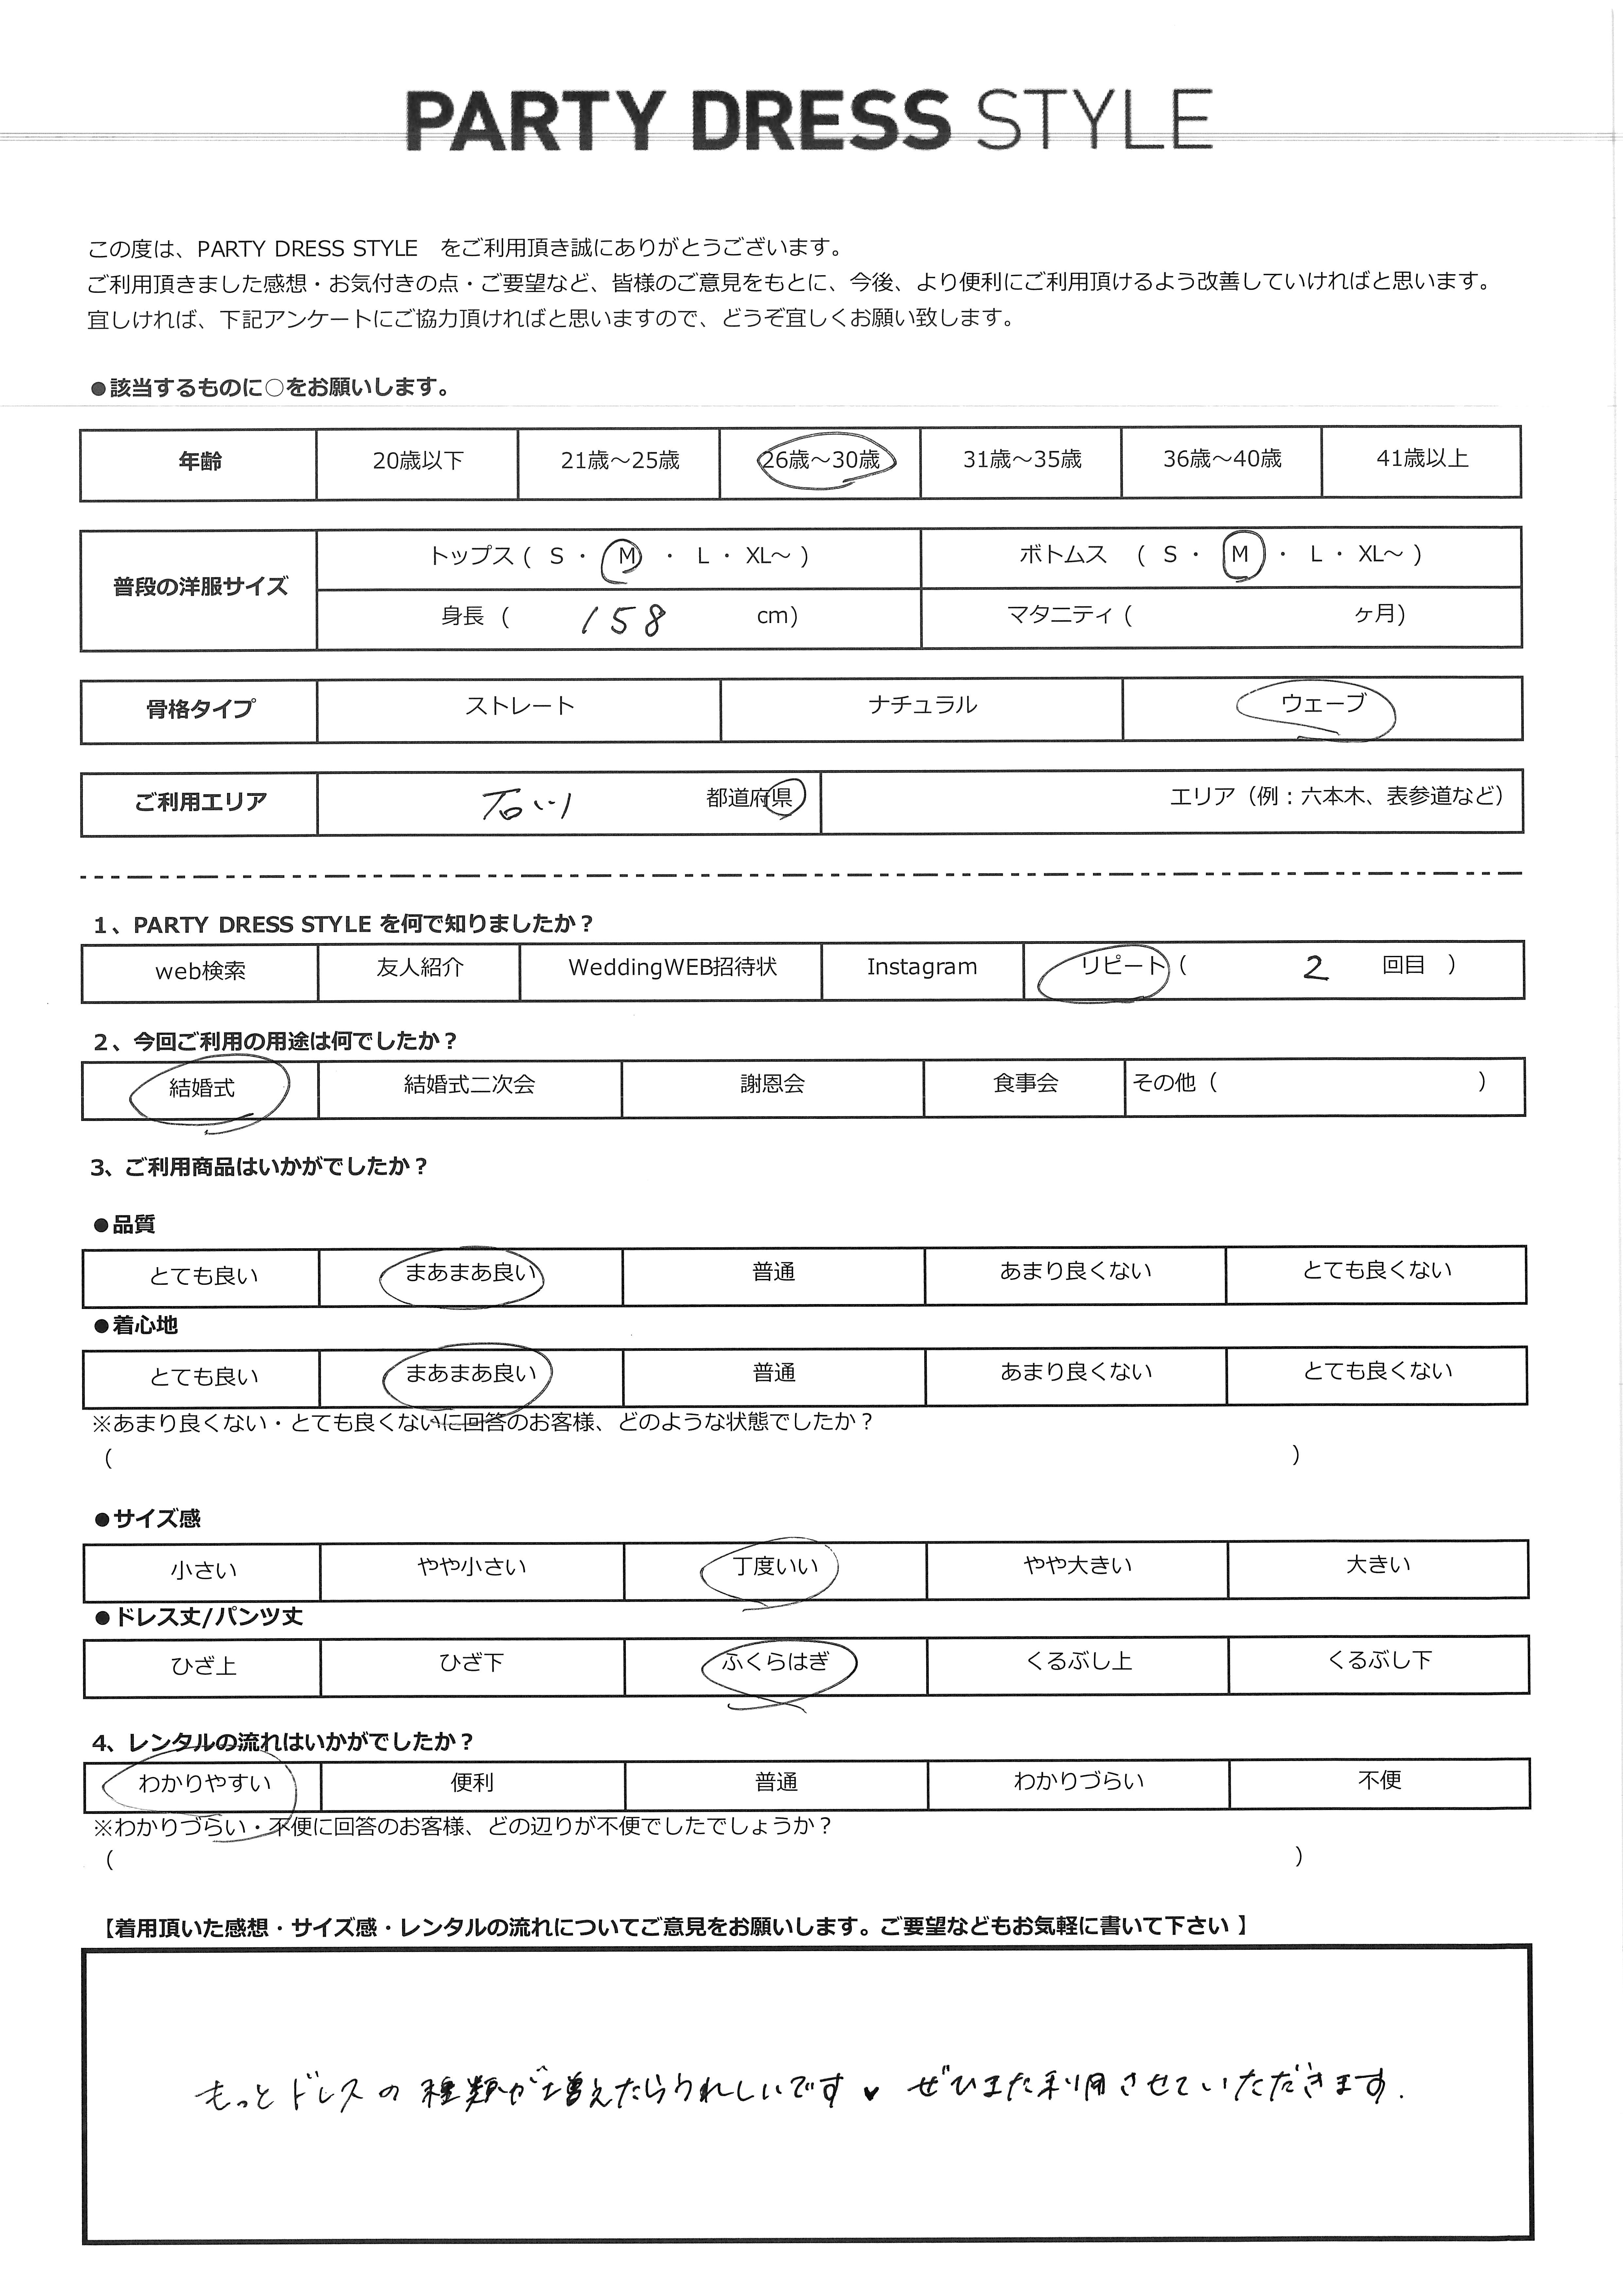 PARTY DRESS STYLE
この度は、PARTY DRESS STYLE　をご利用頂き誠にありがとうございます。
ご利用頂きました感想・お気付きの点・ご要望など、皆様のご意見をもとに、今後、より便利にご利用頂けるよう改善していければと思います。
宜しければ、下記アンケートにご協力頂ければと思いますので、どうぞ宜しくお願い致します。
●該当するものに○をお願いします。
年齢 20歳以下 21歳～25歳 26歳～30歳 31歳～35歳 36歳～40歳 41歳以上
普段の洋服サイズ
トップス ( S ・ M ・ L ・ XL～ ) ボトムス ( S ・ M ・ L ・ XL～ )
身長 ( 158 cm) マタニティ ( ヶ月)
骨格タイプ ストレート ナチュラル ウェーブ
ご利用エリア 石川 都道府県 エリア（例：六本木、表参道など）
1、PARTY DRESS STYLE を何で知りましたか？
web検索 友人紹介 WeddingWEB招待状 Instagram リピート ( 2 回目 )
2、今回ご利用の用途は何でしたか？
結婚式 結婚式二次会 謝恩会 食事会 その他 ( )
3、ご利用商品はいかがでしたか？
●品質
とても良い まあまあ良い 普通 あまり良くない とても良くない
●着心地
とても良い まあまあ良い 普通 あまり良くない とても良くない
※あまり良くない・とても良くないに回答のお客様、どのような状態でしたか？
( )
●サイズ感
小さい やや小さい 丁度いい やや大きい 大きい
●ドレス丈/パンツ丈
ひざ上 ひざ下 ふくらはぎ くるぶし上 くるぶし下
4、レンタルの流れはいかがでしたか？
わかりやすい 便利 普通 わかりづらい 不便
※わかりづらい・不便に回答のお客様、どの辺りが不便でしたでしょうか？
( )
【着用頂いた感想・サイズ感・レンタルの流れについてご意見をお願いします。ご要望などもお気軽に書いて下さい 】
もっとドレスの種類が増えたらうれしいです♥ ぜひまた利用させていただきます.